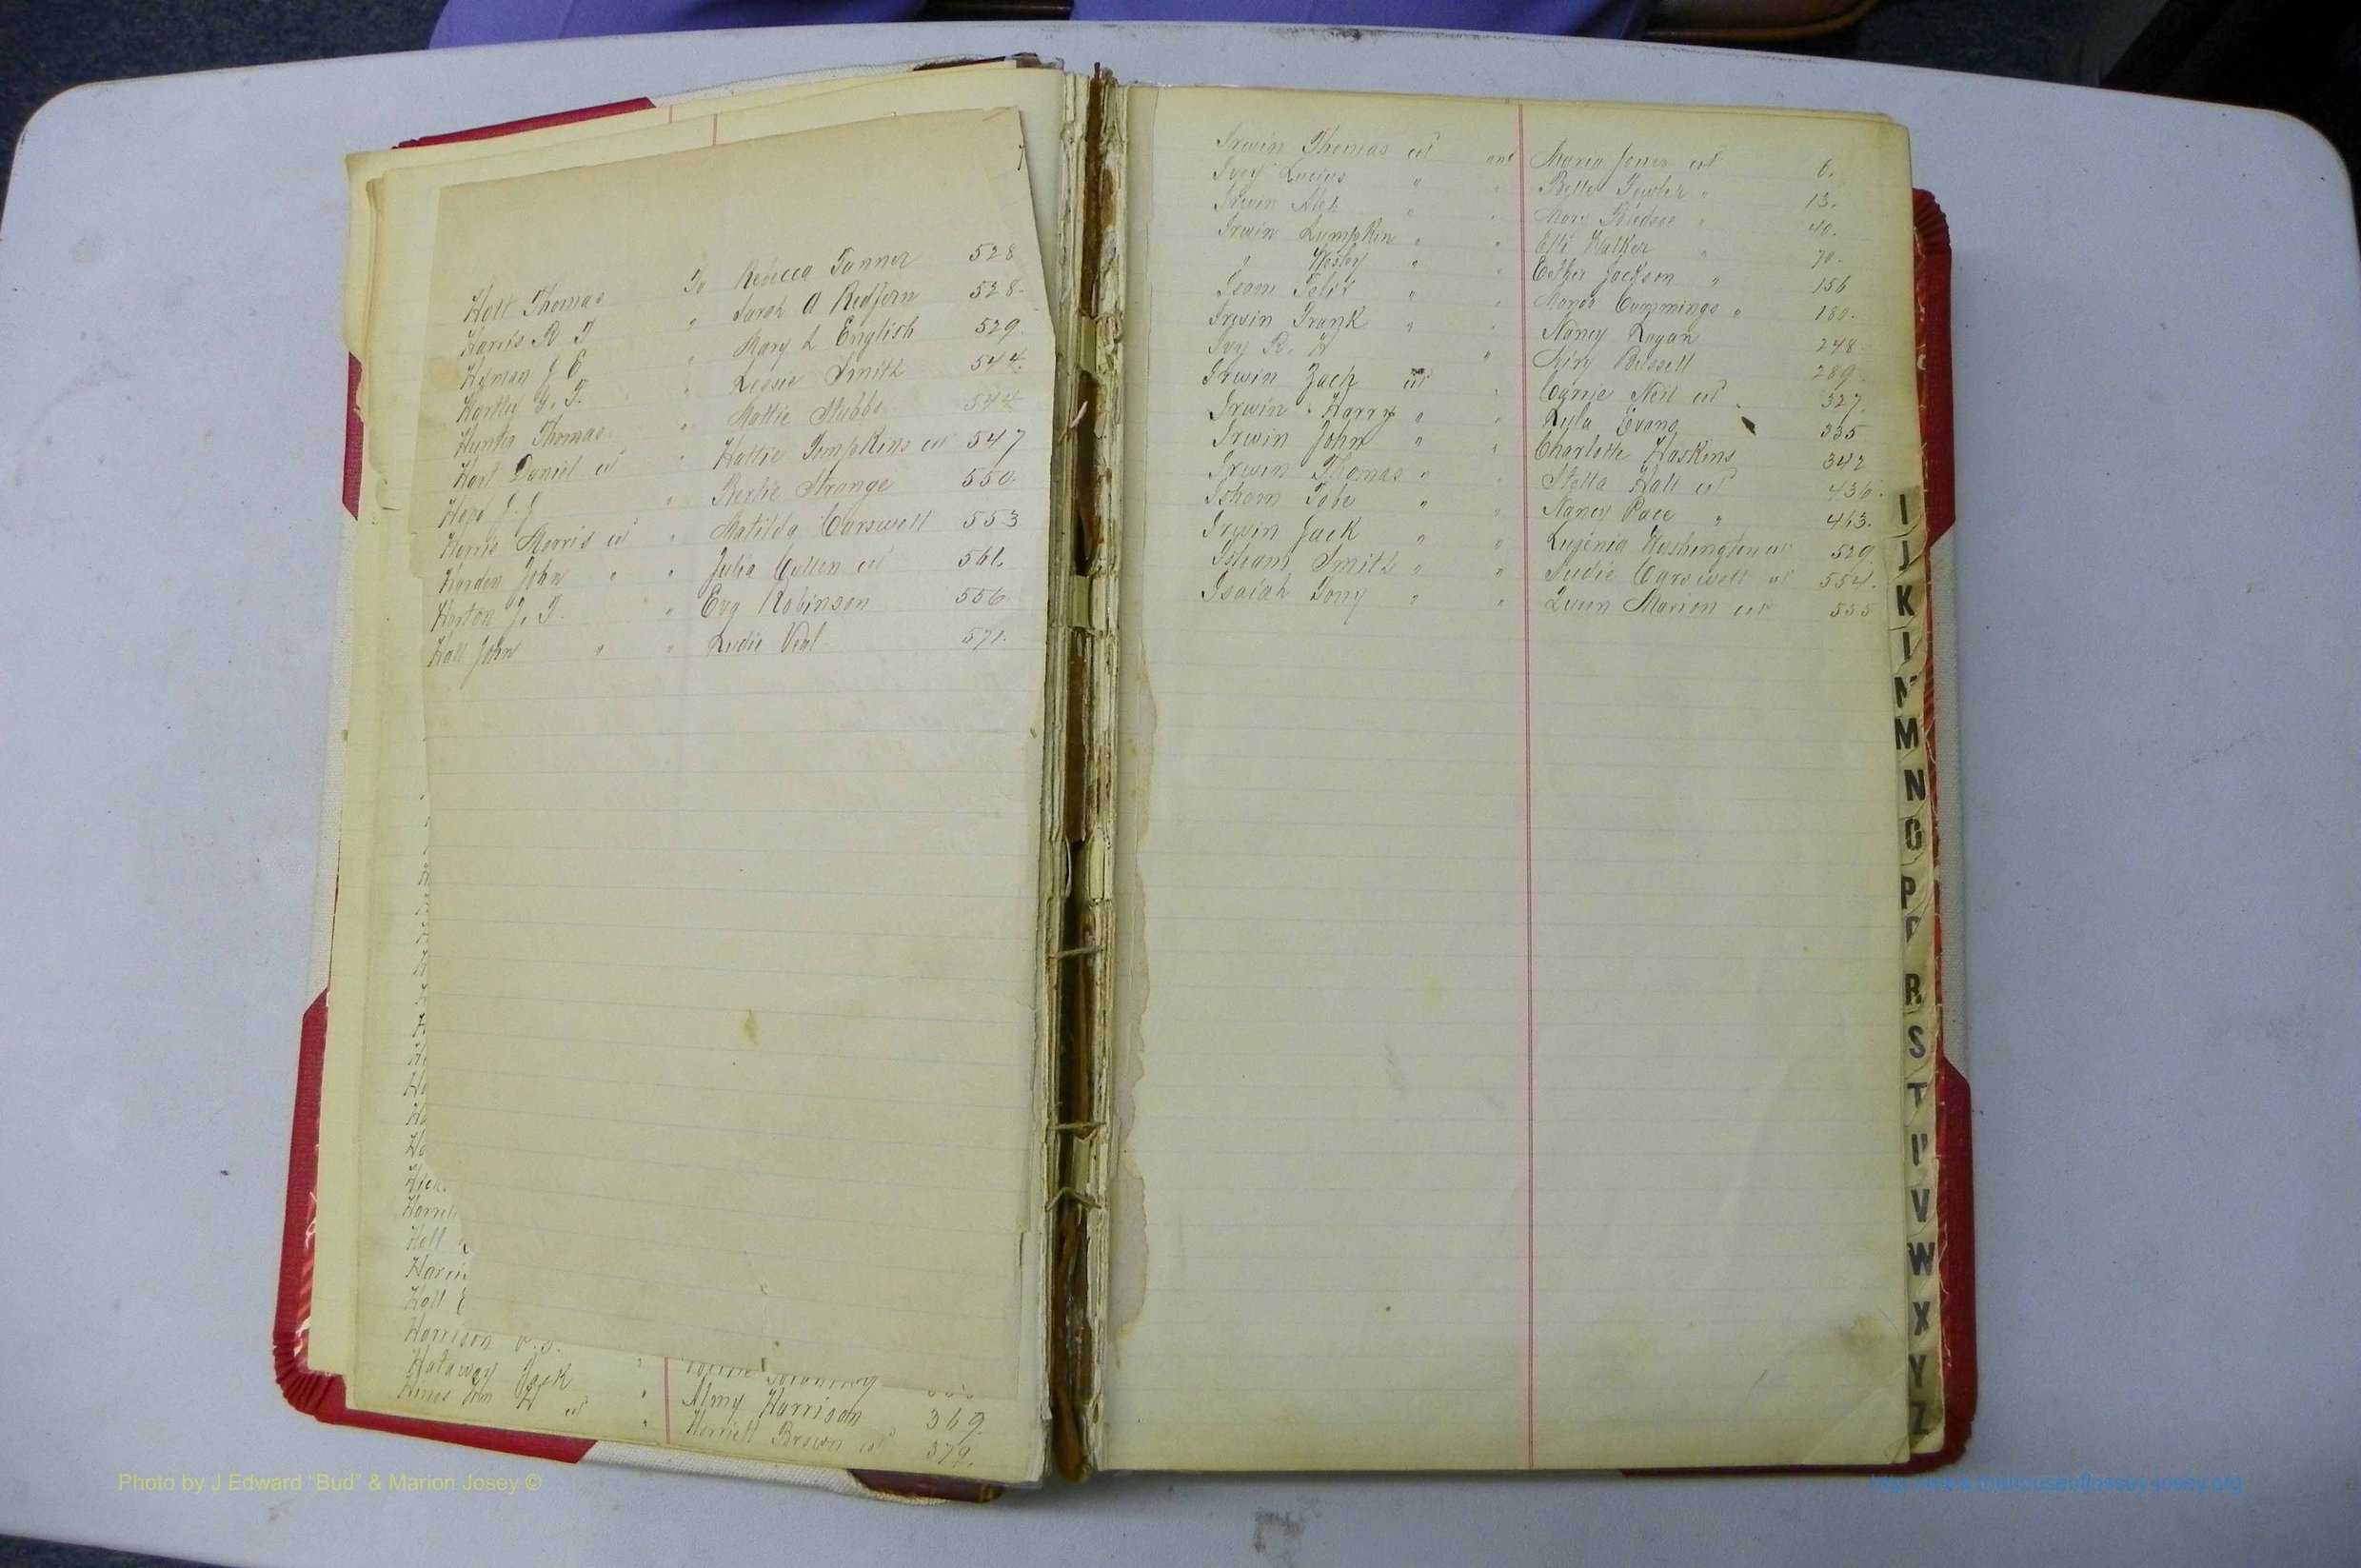 Holt Thomas To Rebecca Tanner 528
Harris R T " Sarah A Redfern 528
Hyman J E " Mary L English 529.
Hartley G. T. " Lessie Smith 544.
Hunter Thomas " Mattie Stubbs 544
Hart Daniel col " Hattie Tompkins col 547
J. J " Bertie Strange 550.
Harris Morris col " Matilda Carswell 553
Harden John " " Julia Cullen col 561.
Horton J. T. " Eva Robinson 556
Hall John " " Ludie Veal 571.
Hick
Harrell
Holl
Harris
Hall E
Harrison
Hataway Jack " Almy Harrison 369.
Hines H col " Harriett Brown col 379.
Irwin Thomas col and Maria Jones col 6.
Ivy Lucius " " Belle " 13.
Irwin Alex " " Mary Bledsoe " 40.
Irwin Lumpkin " " Ella Walker " 70.
" Wesley " " Esther Jackson " 156
Isom Felix " " Cummings " 180.
Irwin Frank " " Nancy Logan 248.
Ivy R. H " Bissell 289.
Irwin Zach col " Carrie Neil col 327.
Irwin Harry " " Lula Evans 335
Irwin John " " Charlotte Haskins 342
Irwin Thomas " " Stella Hall col 436.
Isham Tobe " " Nancy Pace " 463.
Irwin Jack " " Lugenia Washington col 529
Isham Smith " " Sudie Carswell col 554.
Isaiah Tony " " Queen Marion col 555
I
J
K
L
M
M
N
O
P
R
S
T
U
V
W
X
Y
Z
Photo by J Edward "Bud" & Marion Josey ©
http://www.thehouseofjossey-josey.org